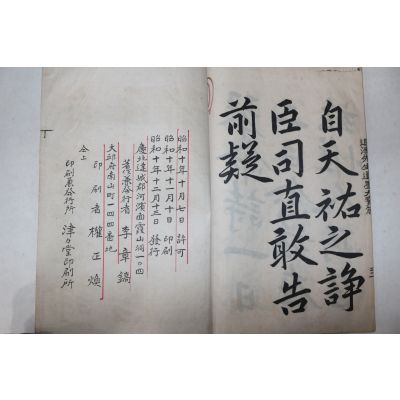 自天祐之諍
臣司直敢告
前疑
昭和十年十月七日 許可
昭和十年十一月十日 印刷
昭和十年十二月十三日 發行
慶北達城郡河濱面霞山洞一〇四
著作兼發行者 李章鎬
大邱府南山町一四四番地
印刷者 權正煥
仝上
印刷兼發行所 津々堂印刷所